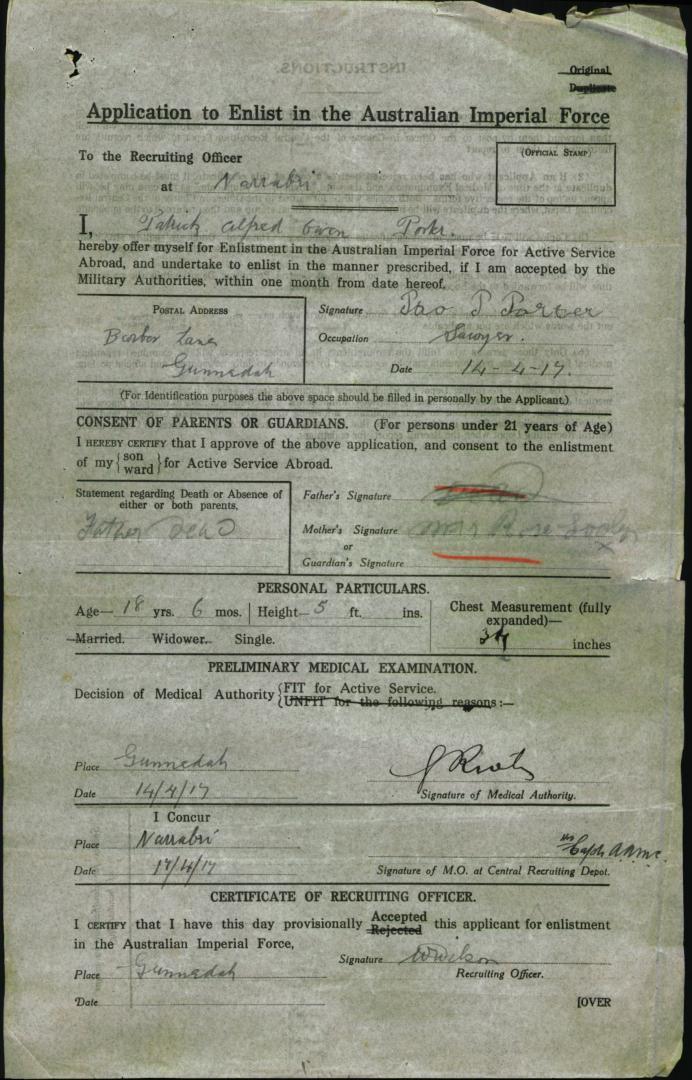 Original
Duplicate
Application to Enlist in the Australian Imperial Force
To the Recruiting Officer
at Narrabri
(OFFICIAL STAMP)
I, Patrick Alfred Owen
hereby offer myself for Enlistment in the Australian Imperial Force for Active Service
Abroad, and undertake to enlist in the manner prescribed, if I am accepted by the
Military Authorities, within one month from date hereof.
POSTAL ADDRESS
Barber Lane
Gunnedah
Signature P Porter
Occupation Sawyer.
Date 14-4-17.
(For Identification purposes the above space should be filled in personally by the Applicant.)
CONSENT OF PARENTS OR GUARDIANS. (For persons under 21 years of Age)
I HEREBY CERTIFY that I approve of the above application, and consent to the enlistment
of my {son ward} for Active Service Abroad.
Statement regarding Death or Absence of
either or both parents.
Father Dead
Father's Signature
Mother's Signature Mrs Rose
or
Guardian's Signature
PERSONAL PARTICULARS.
Age— 18 yrs. 6 mos. Height— 5 ft. ins.
Chest Measurement (fully
expanded)—
34 inches
Married. Widower. Single.
PRELIMINARY MEDICAL EXAMINATION.
Decision of Medical Authority {FIT for Active Service.
{UNFIT for the following reasons:—
Place Gunnedah
Date 14/4/17
Signature of Medical Authority.
I Concur
Place Narrabri
Date 17/4/17
Capt AAMC
Signature of M.O. at Central Recruiting Depot.
CERTIFICATE OF RECRUITING OFFICER.
I CERTIFY that I have this day provisionally Accepted Rejected this applicant for enlistment
in the Australian Imperial Force,
Signature W Wilson
Place Gunnedah
Recruiting Officer.
Date
[OVER